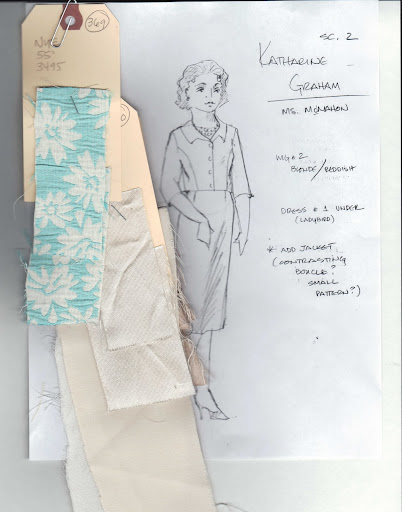 369
55"
3495
SC. 2
KATHARINE
GRAHAM
MS. McMAHON
WIG # 2
BLONDE/REDDISH
DRESS # 1 UNDER
(LADYBIRD)
* ADD JACKET.
(CONTRASTING
BOUCLE?
SMALL
PATTERN?)